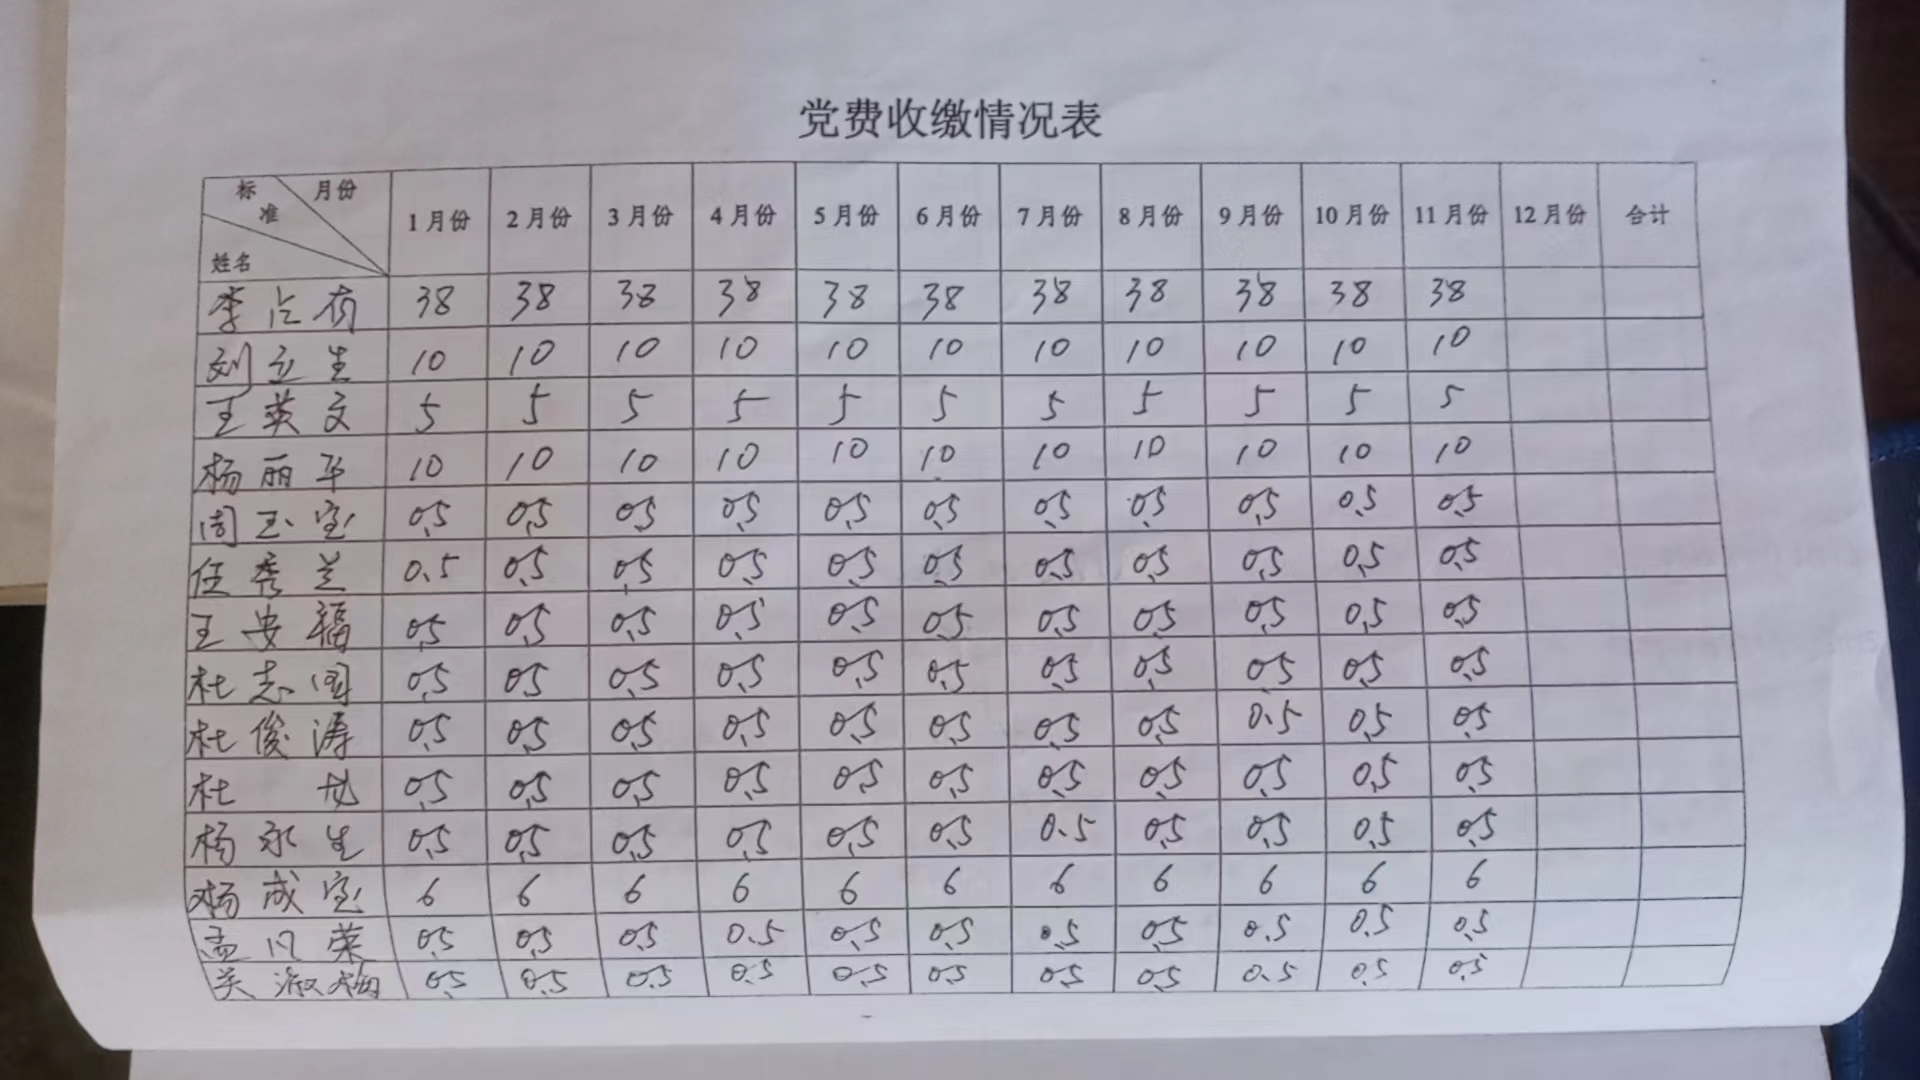 党费收缴情况表
标准 月份 姓名 1月份 2月份 3月份 4月份 5月份 6月份 7月份 8月份 9月份 10月份 11月份 12月份 合计
李占有 38 38 38 38 38 38 38 38 38 38 38
刘立生 10 10 10 10 10 10 10 10 10 10 10
王英文 5 5 5 5 5 5 5 5 5 5 5
杨丽平 10 10 10 10 10 10 10 10 10 10 10
周玉宝 0.5 0.5 0.5 0.5 0.5 0.5 0.5 0.5 0.5 0.5 0.5
任秀兰 0.5 0.5 0.5 0.5 0.5 0.5 0.5 0.5 0.5 0.5 0.5
王安福 0.5 0.5 0.5 0.5 0.5 0.5 0.5 0.5 0.5 0.5 0.5
杜志国 0.5 0.5 0.5 0.5 0.5 0.5 0.5 0.5 0.5 0.5 0.5
杜俊涛 0.5 0.5 0.5 0.5 0.5 0.5 0.5 0.5 0.5 0.5 0.5
杜 0.5 0.5 0.5 0.5 0.5 0.5 0.5 0.5 0.5 0.5 0.5
杨永生 0.5 0.5 0.5 0.5 0.5 0.5 0.5 0.5 0.5 0.5 0.5
杨成宝 6 6 6 6 6 6 6 6 6 6 6
孟凡荣 0.5 0.5 0.5 0.5 0.5 0.5 0.5 0.5 0.5 0.5 0.5
关淑梅 0.5 0.5 0.5 0.5 0.5 0.5 0.5 0.5 0.5 0.5 0.5